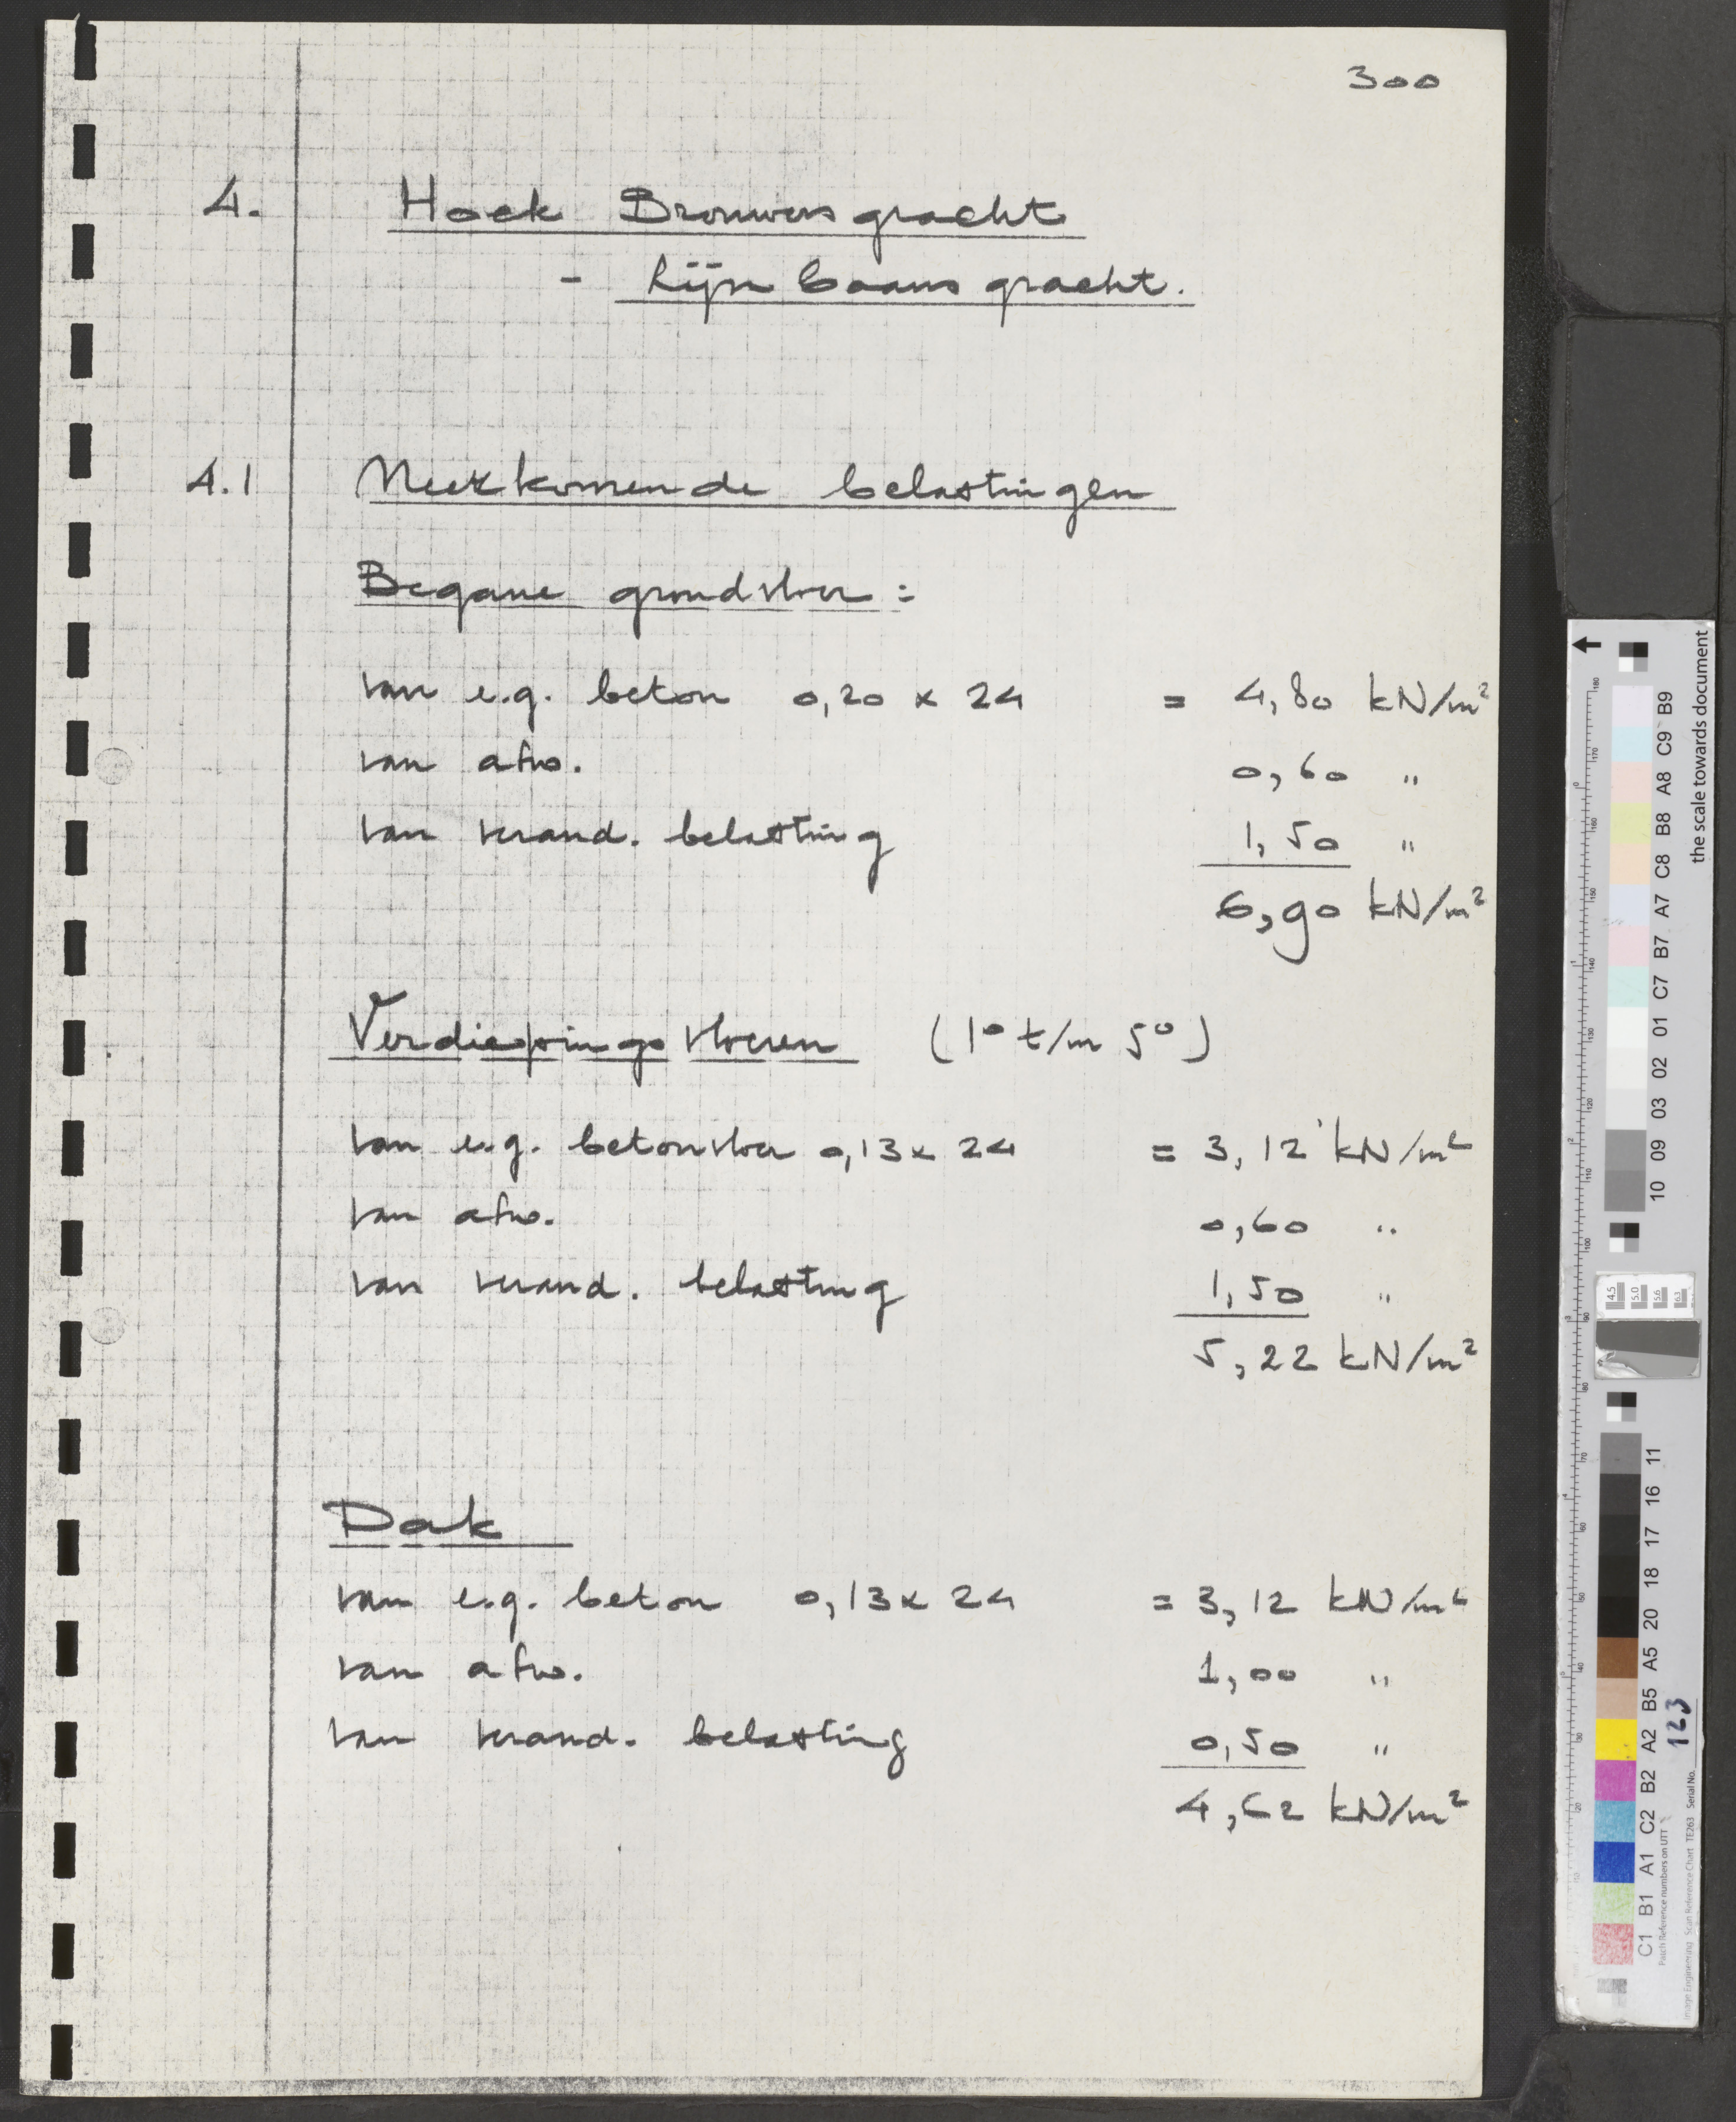 300
4. Hoek Brouwersgracht
- Lijnbaansgracht.
4.1 Neerkomende belastingen
Begane grondvloer :
van e.g. beton 0,20 x 24 = 4,80 kN/m²
van afw. 0,60 "
van verand. belasting 1,50 "
6,90 kN/m²
Verdiepingsvloeren (1e t/m 5e)
van e.g. betonvloer 0,13 x 24 = 3,12 kN/m²
van afw. 0,60 "
van verand. belasting 1,50 "
5,22 kN/m²
Dak
van e.g. beton 0,13 x 24 = 3,12 kN/m²
van afw. 1,00 "
van verand. belasting 0,50 "
4,62 kN/m²
the scale towards document
B9 C9 A8 B8 C8 A7 B7 C7 01 02 03 09 10
11 16 17 18 20 A5 B5 A2 B2 C2 A1 B1 C1
Patch Reference numbers on UTT
Image Engineering Scan Reference Chart TE263 Serial No. 123